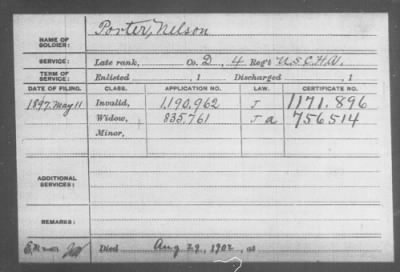 NAME OF SOLDIER: Porter, Nelson
SERVICE: Late rank, Co. D, 4 Reg't U.S.C.H.A.
TERM OF SERVICE: Enlisted , 1 Discharged , 1
DATE OF FILING. CLASS. APPLICATION NO. LAW. CERTIFICATE NO.
1897, May 11 Invalid, 1,190,962 J 1171.896
Widow, 835,761 J a 756514
Minor,
ADDITIONAL SERVICES:
REMARKS:
Died Aug 29, 1902, at